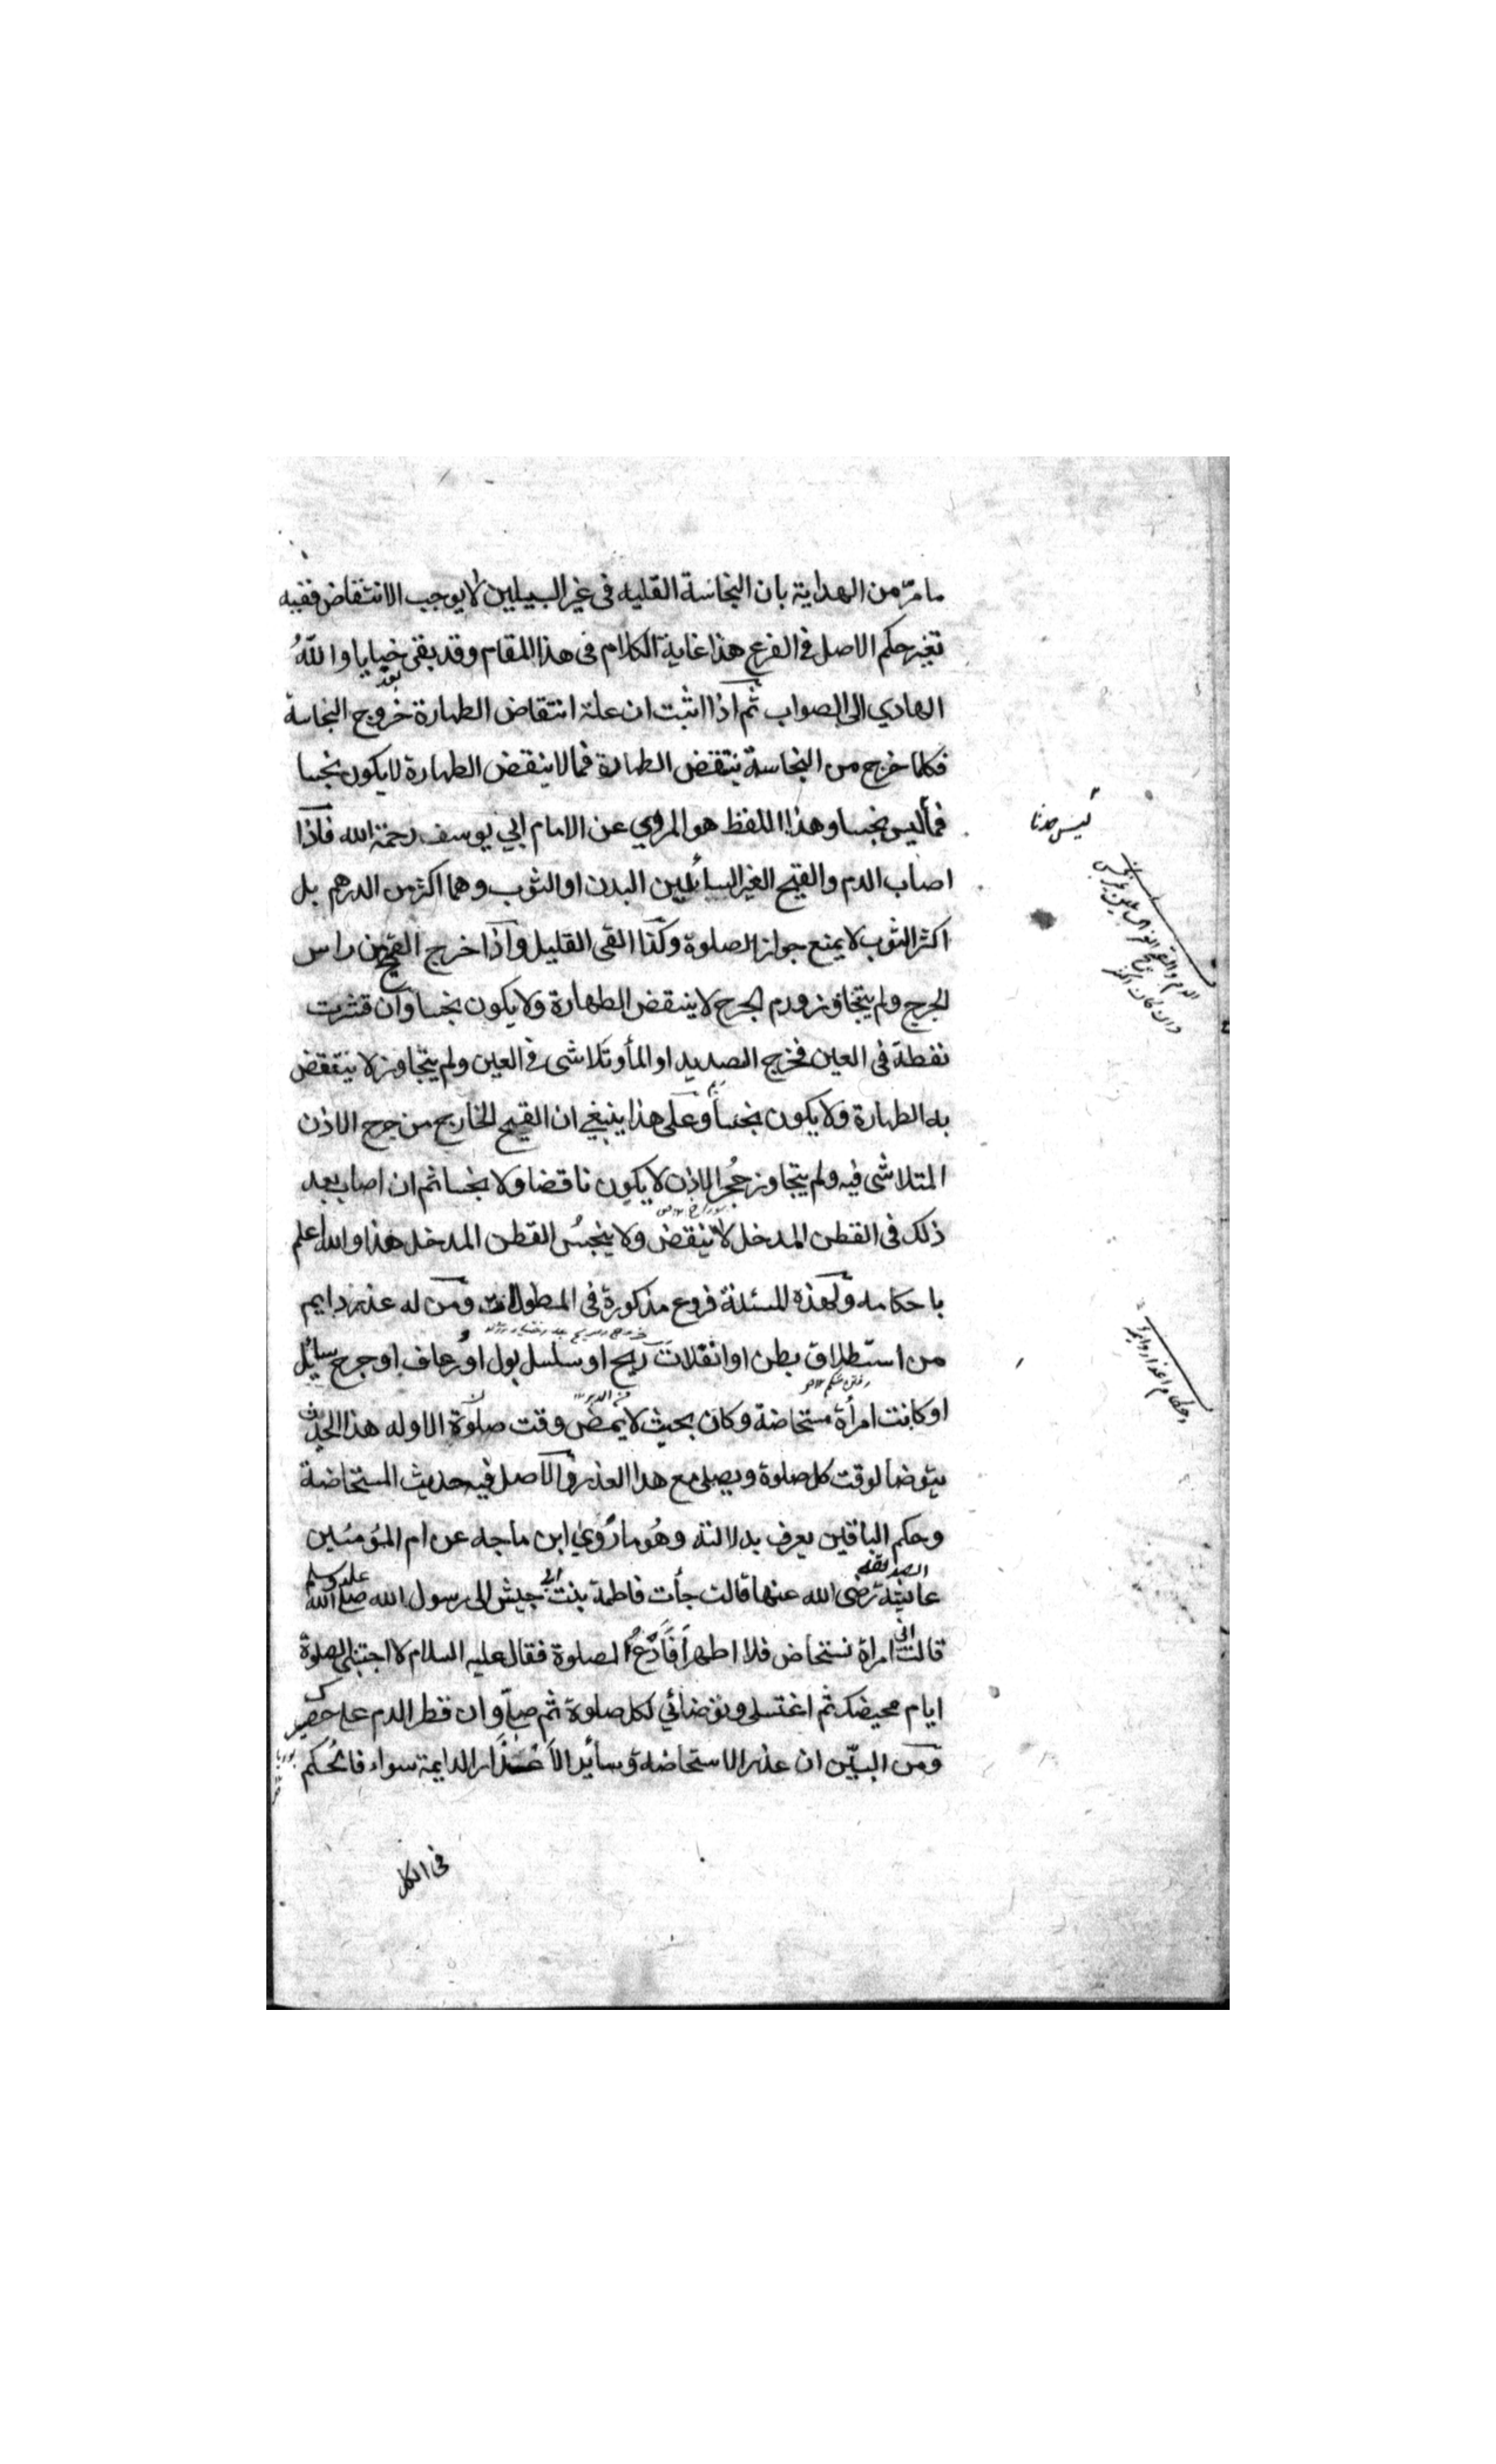 ما مرّ من الهداية بان النجاسة القليه فى غير السبيلين لا يوجب الانتقاض ففيه
تغير حكم الاصل فى الفرع هذا غاية الكلام فى هذا المقام وقد بقى خبايا واللهُ
بعد
الهادي الى الصواب ثم اذا اثبت ان علة انتقاض الطهارة خروج النجاسة
فكلما خرج من النجاسة ينتقض الطهارة فما لا ينقض الطهارة لا يكون نجسا
فما ليس نجسا وهذا اللفظ هو المروي عن الامام ابي يوسف رحمة الله فاذا
ليس حدثا
اصاب الدم والقيح الغير السائلين البدن او الثوب وهما اكثر من الدرهم بل
اكثر الثوب لا يمنع جواز الصلوة وكذا القى القليل واذا خرج القيح من راس
الجرح ولم يتجاوز ورم الجرح لا ينقض الطهارة ولا يكون نجسا وان قشرت
نفطة فى العين فخرج الصديد او الماء وتلاشى فى العين ولم يتجاوز لا ينتقض
به الطهارة ولا يكون نجسا وعلى هذا ينبغي ان القيح الخارج من جرح الاذن
المتلاشى فيه ولم يتجاوز حُجر الاذن لا يكون ناقضا ولا نجسا ثم ان اصاب بعد
ذلك فى القطن المدخل لا ينقض ولا ينجسُ القطن المدخل هذا والله اعلم
باحكامه ولهذه المسئلة فروع مذكورة فى المطولات ومن له عذر دايم
من استطلاق بطن او انفلات ريح او سلسل بول او رعاف او جرح سائل
او كانت امرأة مستحاضة وكان بحيث لا يمض وقت صلوة الا وله هذا الحدث
يتوضا لوقت كل صلوة ويصلى مع هذا العذر والاصل فيه حديث المستحاضة
وحكم الباقين يعرف بدلالته وهُو ما رُوي ابن ماجه عن ام المؤمنين
عايشة الصديقة رضى الله عنها قالت جأت فاطمة بنت ابي حبيش الى رسول الله صلى الله عليه وسلم
قالت انى امراة نستحاض فلا اطهر أفَأدَعُ الصلوة فقال عليه السلام لا اجتنبى الصلوة
ايام محيضك ثم اغتسلى وتوضائي لكل صلوة ثم صلّ وان قطر الدم على حصير
ومن البيّن ان عذر الاستحاضة وسائر الاعذار الدايمة سواء فالحُكم
فى الكل